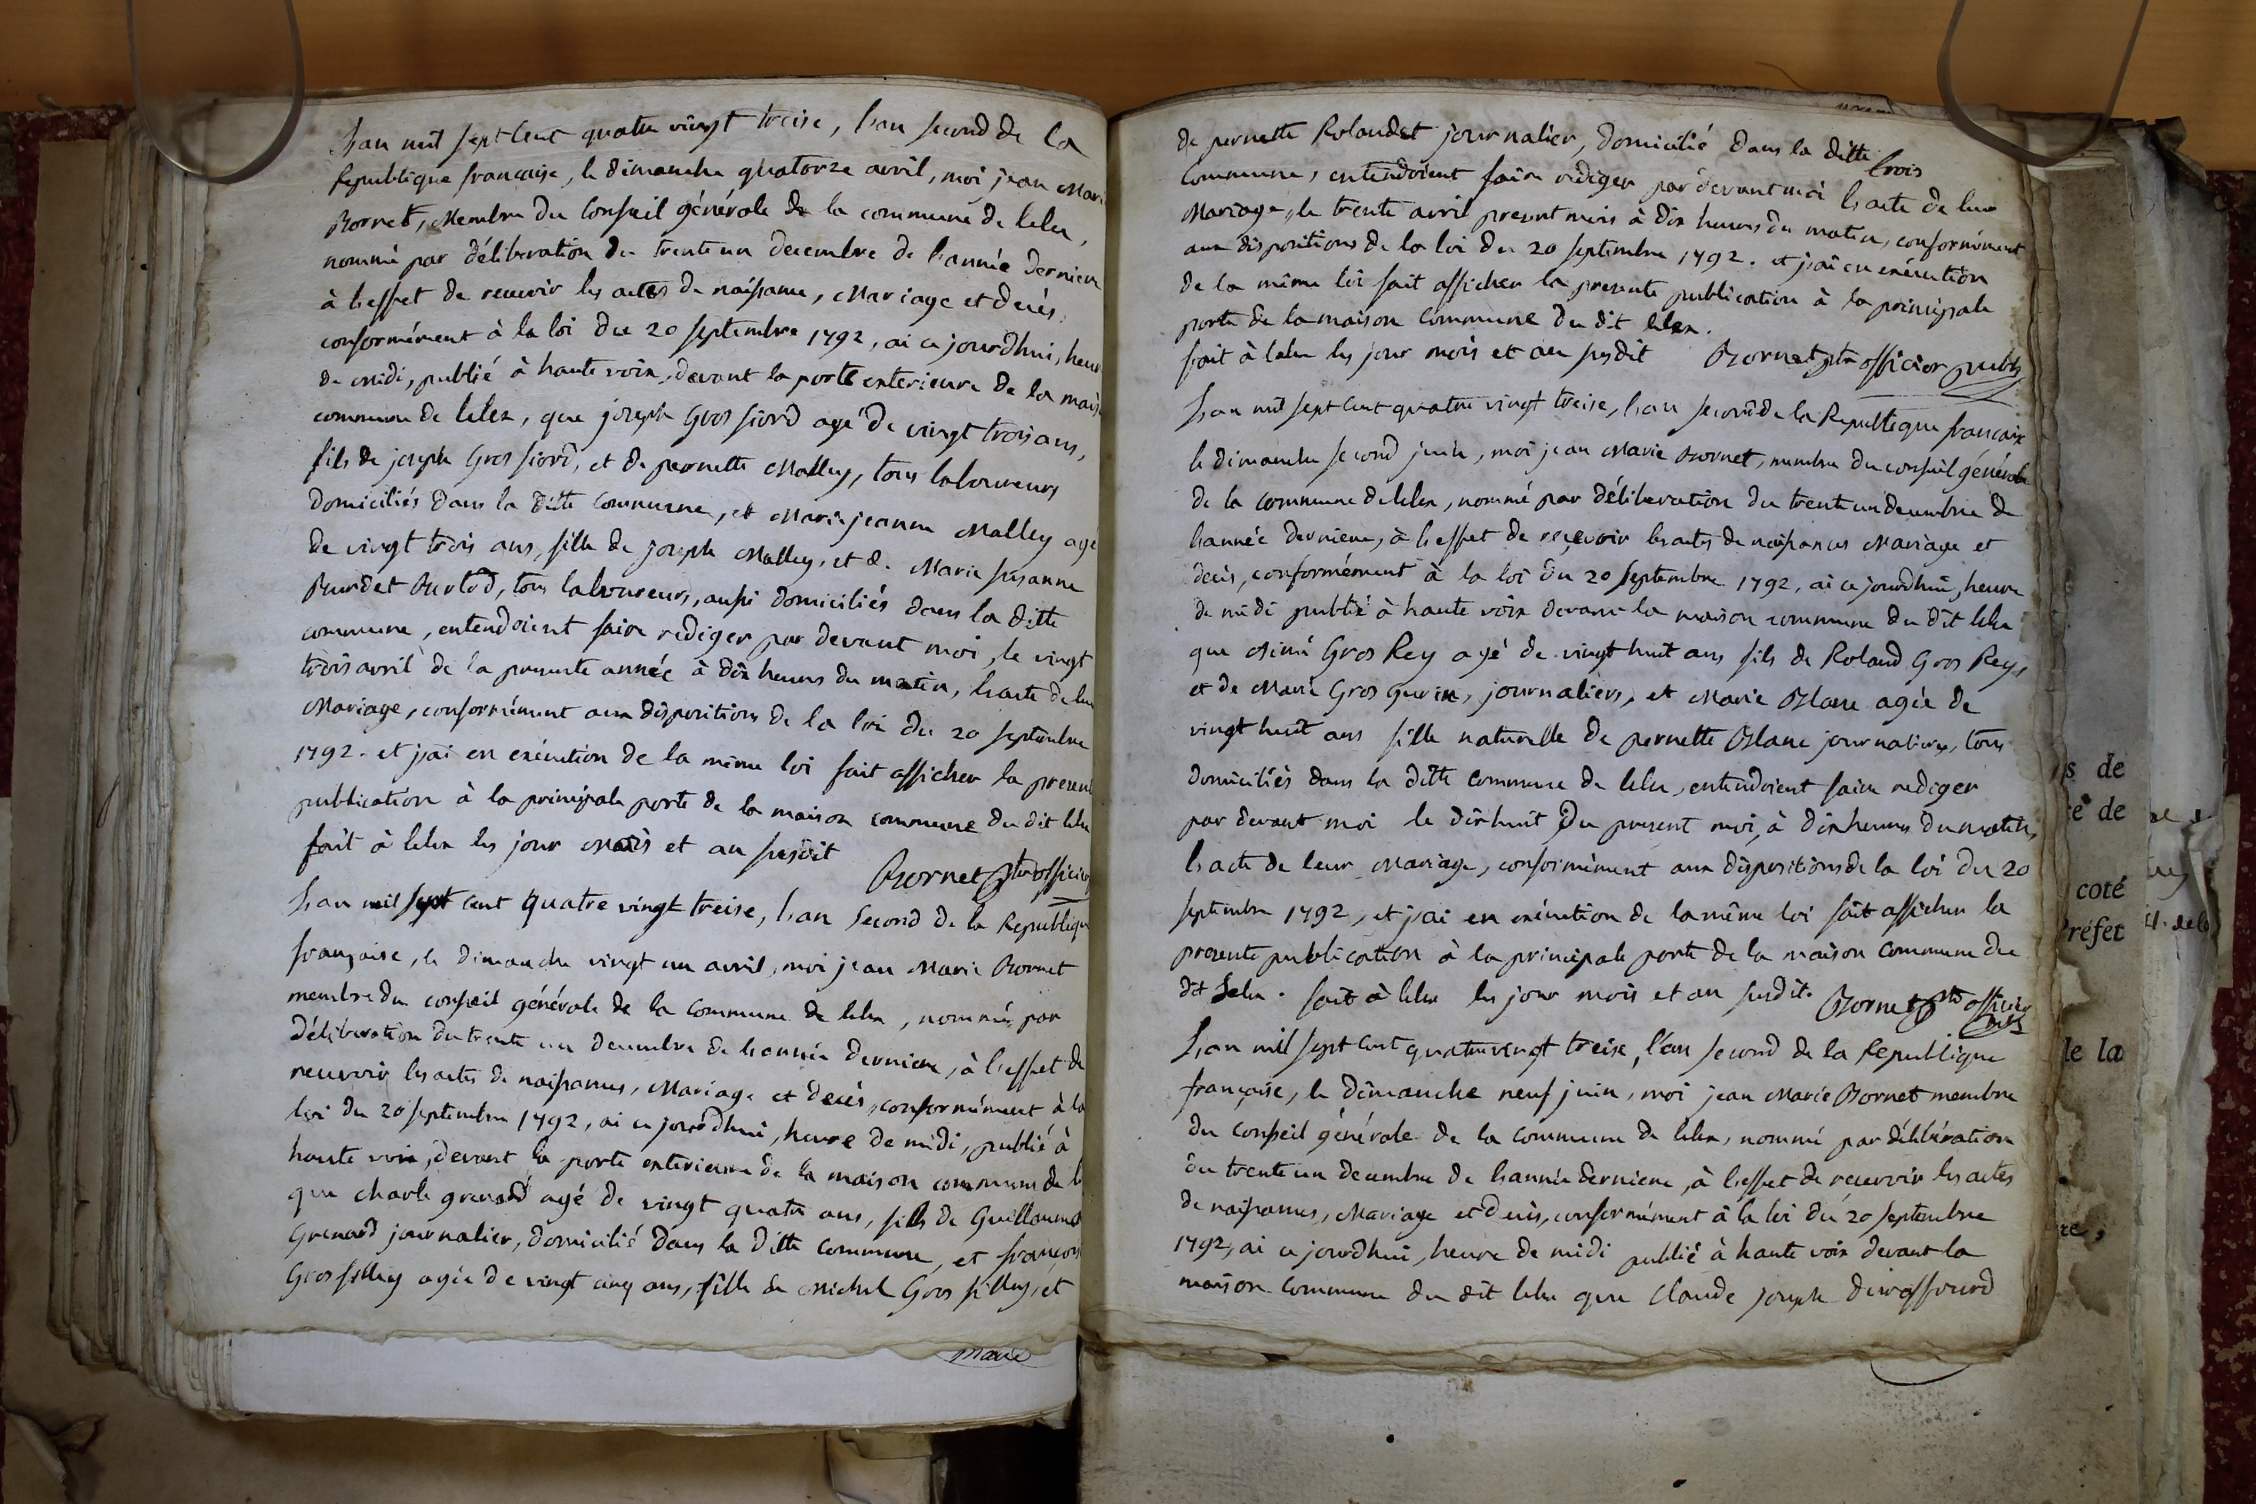 L'an mil sept Cent quatre vingt treise, l'an second de la
Republique francaise, le dimanche quatorze avril, moi jean Mari
Bornet, Membre du Conseil générale de la commune de lelex,
nommé par déliberation du trente un decembre de l'année derniere
à l'effet de recevoir les actes de naissance, Mariage et decès,
conformément à la loi du 20 septembre 1792, ai ce jourdhui, heure
de midi, publié à haute voix, devant la porte exterieure de la mais
commune de lelex, que joseph Gros fiord agé de vingt trois ans,
fils de joseph Gros fiord, et de pernette Malley, tous laboureurs
domiciliés dans la ditte Commune, et Marie jeanne Malley agé
de vingt trois ans, fille de joseph Malley, et de Marie susanne
Burdet Burlod, tous laboureurs, aussi domiciliés dans la ditte
commune, entendoient faire rediger par devant moi, le vingt
trois avril de la presente année à dix heures du matin, l'acte de leu
Mariage, conformément aux dispositions de la loi du 20 septembre
1792. et j'ai en exécution de la même loi fait afficher la present
publication à la principale porte de la maison commune du dit lelex
fait à lelex les jour mois et an susdit Bornet ptre officier
L'an mil sept cent quatre vingt treise, l'an second de la Republique
française, le dimanche vingt un avril, moi jean Marie Bornet
membre du conseil générale de la commune de lelex, nommé par
déliberation du trente un decembre de l'année derniere, à l'effet de
recevoir les actes de naissances, Mariage et decès, conformément à la
loi du 20 septembre 1792, ai ce jourdhui, heure de midi, publié à
haute voix, devant la porte exterieure de la maison commune de l
que charle grenard agé de vingt quatre ans, fils de Guillaume
Grenard journalier, domicilié dans la ditte Commune, et françois
Gros filley agée de vingt cinq ans, fille de Michel Gros filley, et
marie
de pernette Rolandet journalier, domicilié dans la ditte
trois
Commune, entendoient faire rediger par devant moi l'acte de leur
Mariage, le trente avril present mois à dix heures du matin, conformément
aux dispositions de la loi du 20 septembre 1792. et j'ai en exécution
de la même loi fait afficher la presente publication à la principale
porte de la maison Commune du dit lelex.
fait à lelex les jour mois et an susdit Bornet ptre officier public
L'an mil sept Cent quatre vingt treise, l'an second de la Republique francaise
le dimanche second juin, moi jean Marie Bornet, membre du conseil générale
de la commune de lelex, nommé par déliberation du trente un decembre de
l'année derniere, à l'effet de reçevoir les actes de naissances Mariage et
decès, conformément à la loi du 20 septembre 1792, ai ce jourdhui, heure
de midi publié à haute voix devant la maison commune du dit lelex
que Aimé Gros Rey agé de vingt huit ans fils de Roland Gros Rey,
et de Marie Gros gurin, journaliers, et Marie Blanc agée de
vingt huit ans fille naturelle de pernette Blanc journaliere, tous
domiciliés dans la ditte commune de lelex, entendoient faire rediger
par devant moi le dix huit Du present moi, à dix heures du matin,
l'acte de leur Mariage, conformément aux dispositions de la loi du 20
septembre 1792, et j'ai en exécution de la même loi fait afficher la
presente publication à la principale porte de la maison Commune du
dit Lelex. fait à lelex les jour mois et an susdit. Bornet ptre officier
L'an mil sept Cent quatre vingt treise, l'an second de la Republique
française, le dimanche neuf juin, moi jean Marie Bornet membre
du conseil générale de la commune de lelex, nommé par délibération
du trente un decembre de l'année derniere, à l'effet de recevoir les actes
de naissances, Mariage et decès, conformément à la loi du 20 septembre
1792, ai ce jourdhui, heure de midi publié à haute voix devant la
maison Commune du dit lelex que Claude joseph
s de
de
coté
réfet
de la
re,